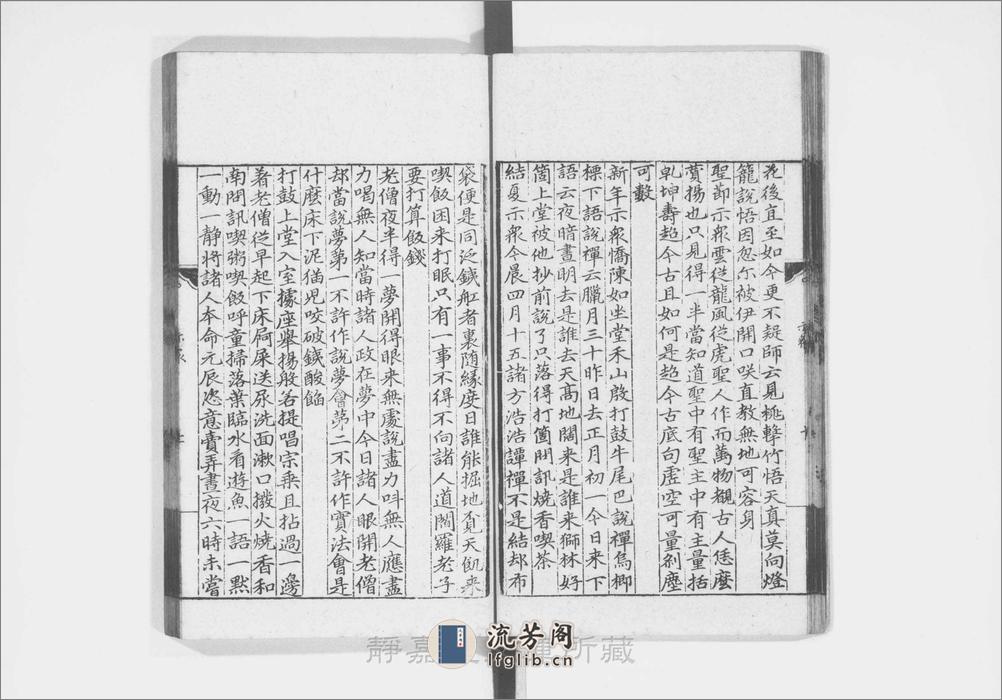 花後直至如今更不疑師云見桃擊竹悟天真莫向燈
籠說悟因忽尓被伊開口咲直教無地可容身
聖節示衆雲從龍風從虎聖人作而萬物覩古人恁麽
賛揚也只見得一半當知道聖中有聖主中有主量括
乾坤壽超今古且如何是超今古底句虛空可量剎塵
可數
新年示衆憍陳如坐堂禾山皷打鼓牛尾巴說禪烏楖
檁下語說禪云臘月三十昨日去正月初一今日来下
語云夜暗晝明去是誰去天髙地闊来是誰来獅林好
箇上堂被他抄前說了只落得打箇問訊燒香喫茶
結夏示衆今晨四月十五諸方浩浩譚禪不是結却布
袋便是同泛鐵船者裏随縁度日誰能掘地覔天飢来
喫飯困来打眠只有一事不得不向諸人道閻羅老子
要打算飯錢
老僧夜半得一夢開得眼来無處說盡力呌無人應盡
力喝無人知當時諸人政在夢中今日諸人眼開老僧
却當說夢第一不許作說夢會第二不許作實法會是
什麽床下泥猫児咬破鐵酸餡
打鼓上堂入室據座舉揚般若提唱宗乗且拈過一邊
著老僧從早起下床屙屎送尿洗面漱口撥火燒香和
南問訊喫粥喫飯呼童掃落葉臨水看遊魚一語一黙
一動一靜將諸人本命元辰恣意賣弄晝夜六時未嘗
流芳阁
lfglib.cn
靜嘉 所藏